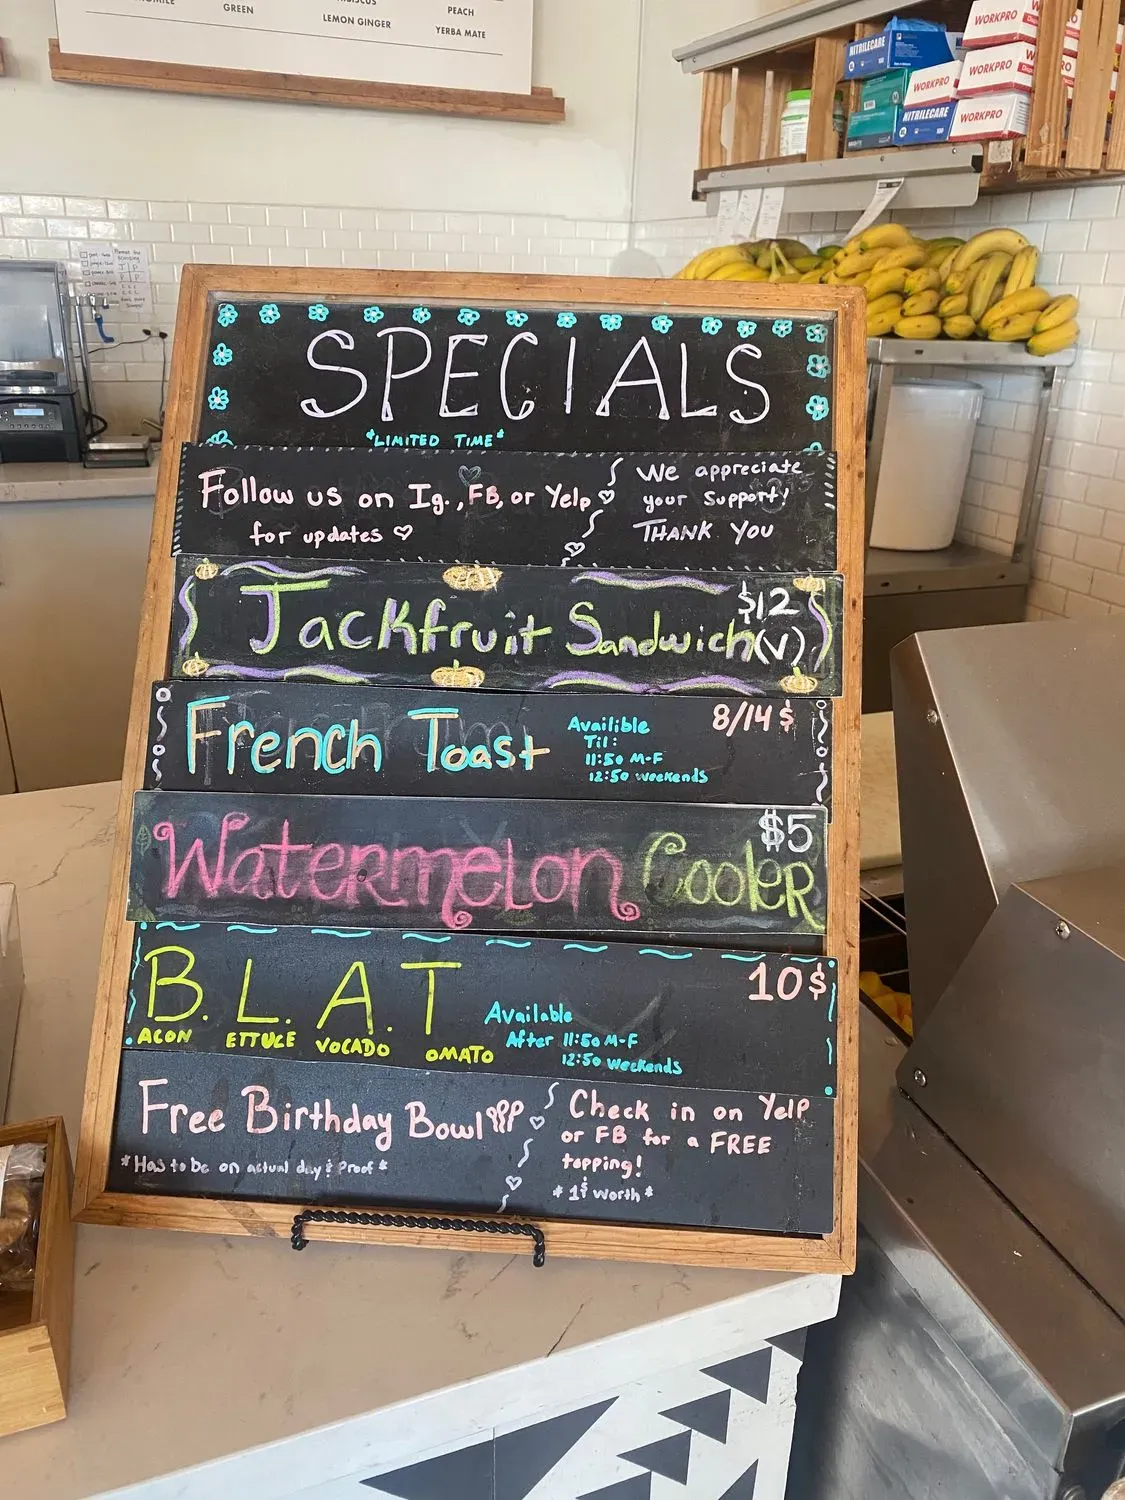 GREEN
LEMON GINGER
PEACH
YERBA MATE
WORKPRO
NITRILECARE
WORKPRO
WORKPRO
NITRILECARE
WORKPRO
SPECIALS
*LIMITED TIME*
Follow us on Ig., FB, or Yelp
for updates
We appreciate
your Support!
THANK YOU
Jackfruit Sandwich
$12
(V)
French Toast
Availible
Til:
11:50 M-F
12:50 weekends
8/14 $
Watermelon Cooler
$5
B. L. A. T
ACON ETTUCE VOCADO OMATO
Available
After 11:50 M-F
12:50 Weekends
10$
Free Birthday Bowl
*Has to be on actual day & Proof*
Check in on Yelp
or FB for a FREE
topping!
*1$ worth*